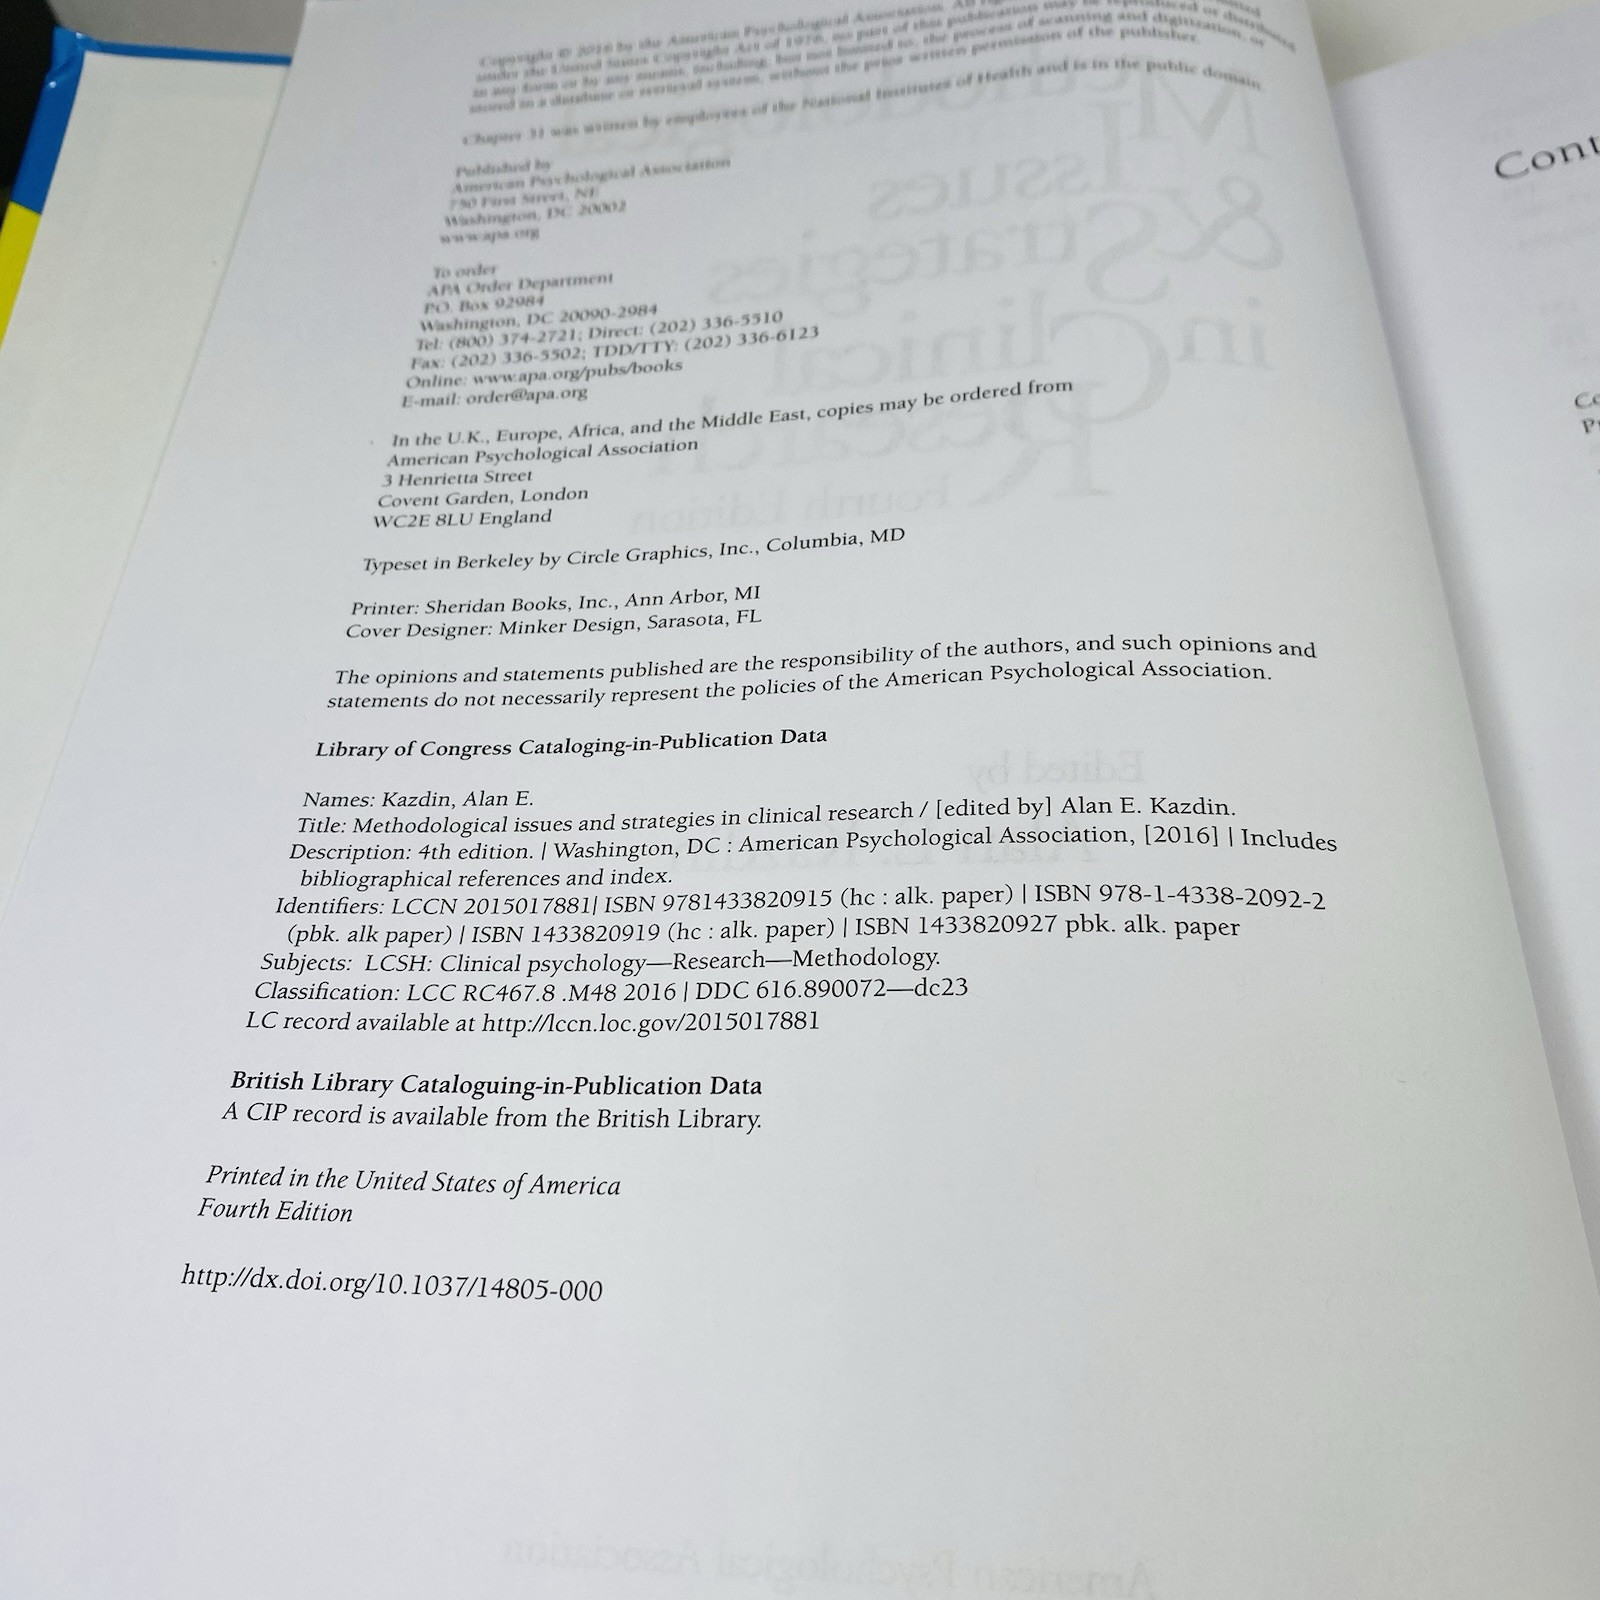 Copyright © 2016 by the American Psychological Association. All
under the United States Copyright Act of 1976, no part of this publication may be reproduced or distributed
in any form or by any means, including, but not limited to, the process of scanning and digitization, or
stored in a database or retrieval system, without the prior written permission of the publisher.
Chapter 31 was written by employees of the National Institutes of Health and is in the public domain.
Published by
American Psychological Association
750 First Street, NE
Washington, DC 20002
www.apa.org
To order
APA Order Department
P.O. Box 92984
Washington, DC 20090-2984
Tel: (800) 374-2721; Direct: (202) 336-5510
Fax: (202) 336-5502; TDD/TTY: (202) 336-6123
Online: www.apa.org/pubs/books
E-mail: order@apa.org
In the U.K., Europe, Africa, and the Middle East, copies may be ordered from
American Psychological Association
3 Henrietta Street
Covent Garden, London
WC2E 8LU England
Typeset in Berkeley by Circle Graphics, Inc., Columbia, MD
Printer: Sheridan Books, Inc., Ann Arbor, MI
Cover Designer: Minker Design, Sarasota, FL
The opinions and statements published are the responsibility of the authors, and such opinions and
statements do not necessarily represent the policies of the American Psychological Association.
Library of Congress Cataloging-in-Publication Data
Names: Kazdin, Alan E.
Title: Methodological issues and strategies in clinical research / [edited by] Alan E. Kazdin.
Description: 4th edition. | Washington, DC : American Psychological Association, [2016] | Includes
bibliographical references and index.
Identifiers: LCCN 2015017881| ISBN 9781433820915 (hc : alk. paper) | ISBN 978-1-4338-2092-2
(pbk. alk paper) | ISBN 1433820919 (hc : alk. paper) | ISBN 1433820927 pbk. alk. paper
Subjects: LCSH: Clinical psychology—Research—Methodology.
Classification: LCC RC467.8 .M48 2016 | DDC 616.890072—dc23
LC record available at http://lccn.loc.gov/2015017881
British Library Cataloguing-in-Publication Data
A CIP record is available from the British Library.
Printed in the United States of America
Fourth Edition
http://dx.doi.org/10.1037/14805-000
Cont